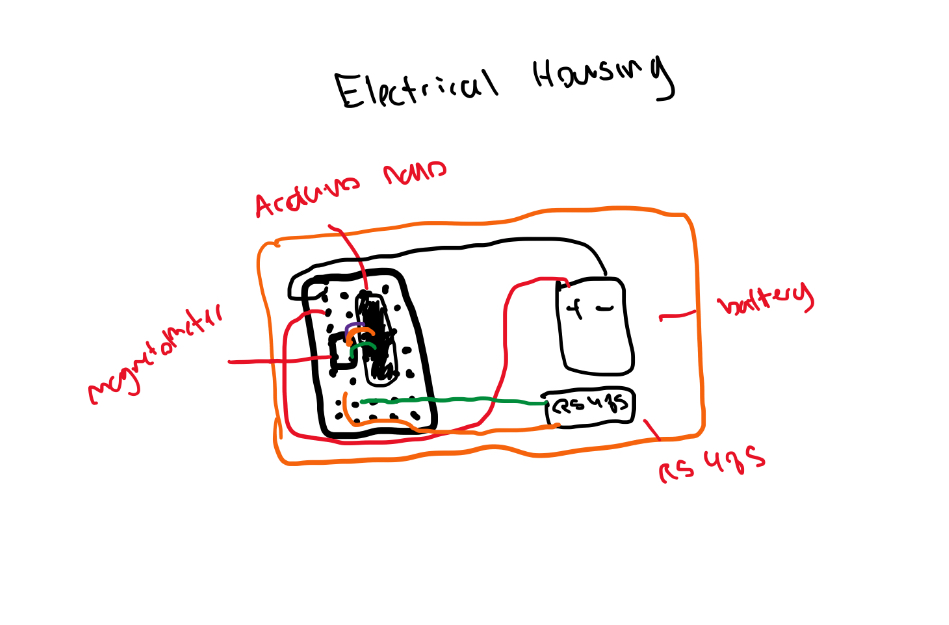 Electrical Housing
Arduino nano
magnetometer
+ -
battery
RS 485
RS 485